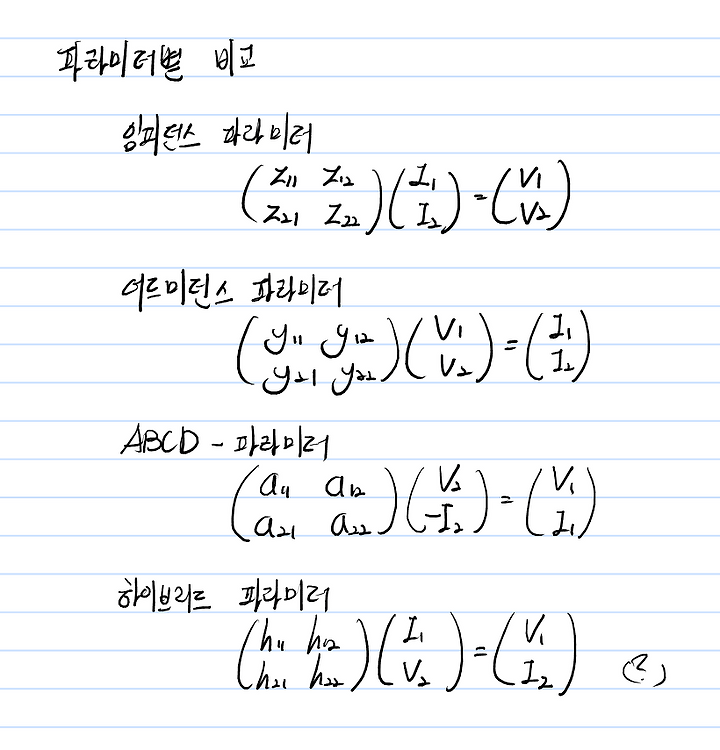 파라미터별 비교
임피던스 파라미터
(z₁₁ z₁₂ / z₂₁ z₂₂)(I₁ / I₂) = (V₁ / V₂)
어드미턴스 파라미터
(y₁₁ y₁₂ / y₂₁ y₂₂)(V₁ / V₂) = (I₁ / I₂)
ABCD - 파라미터
(a₁₁ a₁₂ / a₂₁ a₂₂)(V₂ / -I₂) = (V₁ / I₁)
하이브리드 파라미터
(h₁₁ h₁₂ / h₂₁ h₂₂)(I₁ / V₂) = (V₁ / I₂) (?)